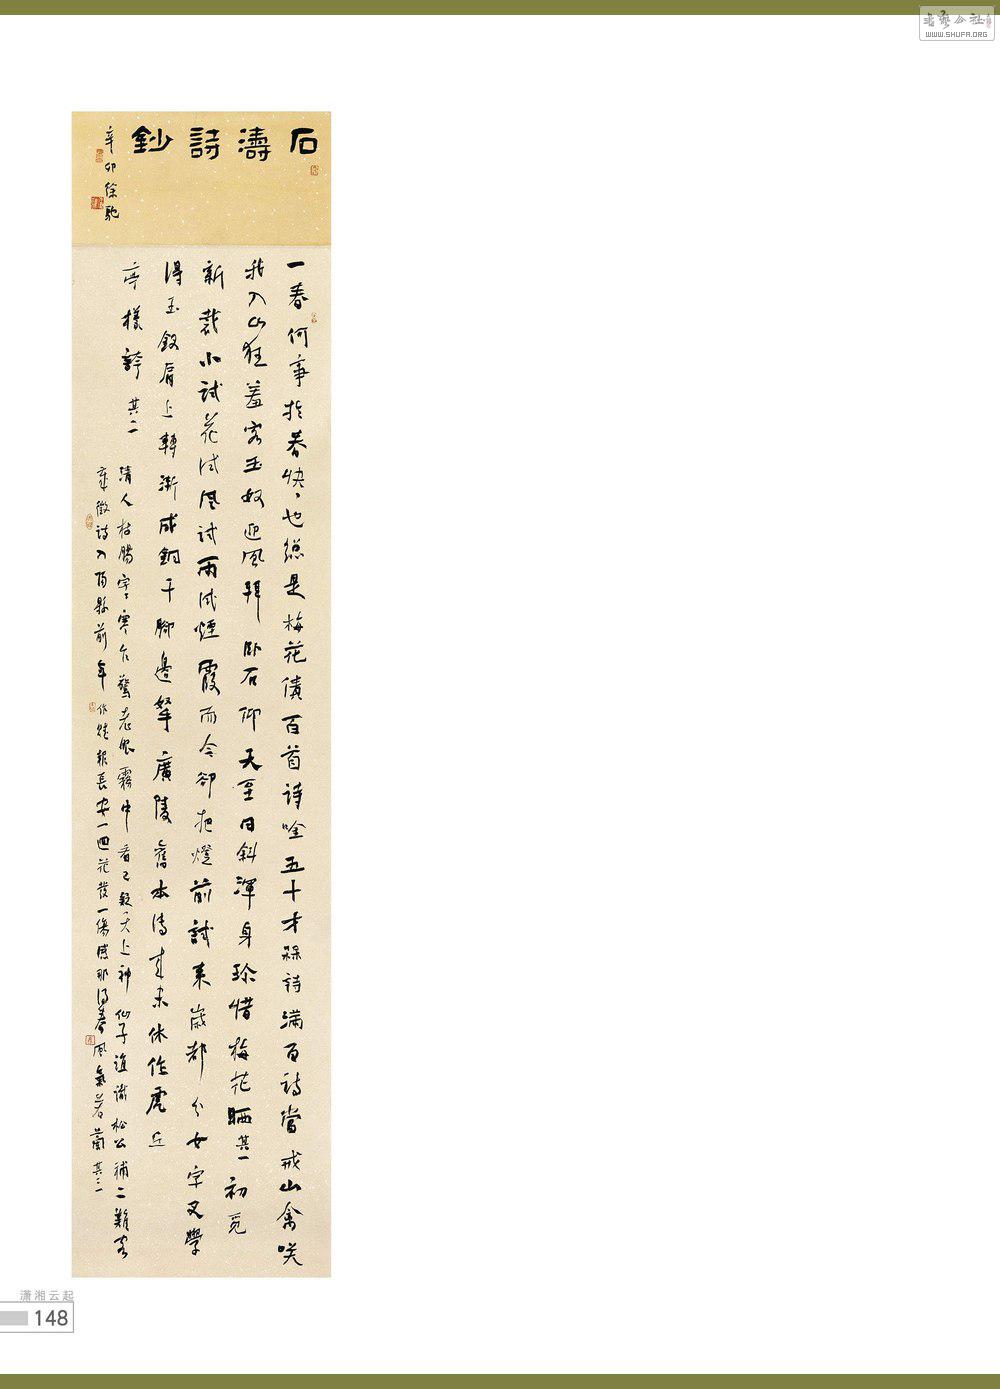 WWW.SHUFA.ORG
石濤詩鈔
辛卯徐馳
一春何事指春快快也總是梅花債百首詩唫五十才祘詩滿百詩當戒山禽咲
我入山狂羞客玉奴迎風拜卧石仰天至日斜渾身珍惜梅花晒其一初覓
新裁小試花試風試雨試煙霞而今卻把燈前試來歲都分女字又學
得玉釵肩上轉漸成銅干腳邊拏廣陵舊本傳來未休作虎丘
亭樣誇其二
清人枯腸字字寒乍驚老眼霧中看已疑天上神仙子誼謝松公補二難客
前年作報長安一四花發一傷感那得春風氣若蘭其三
潇湘云起
148